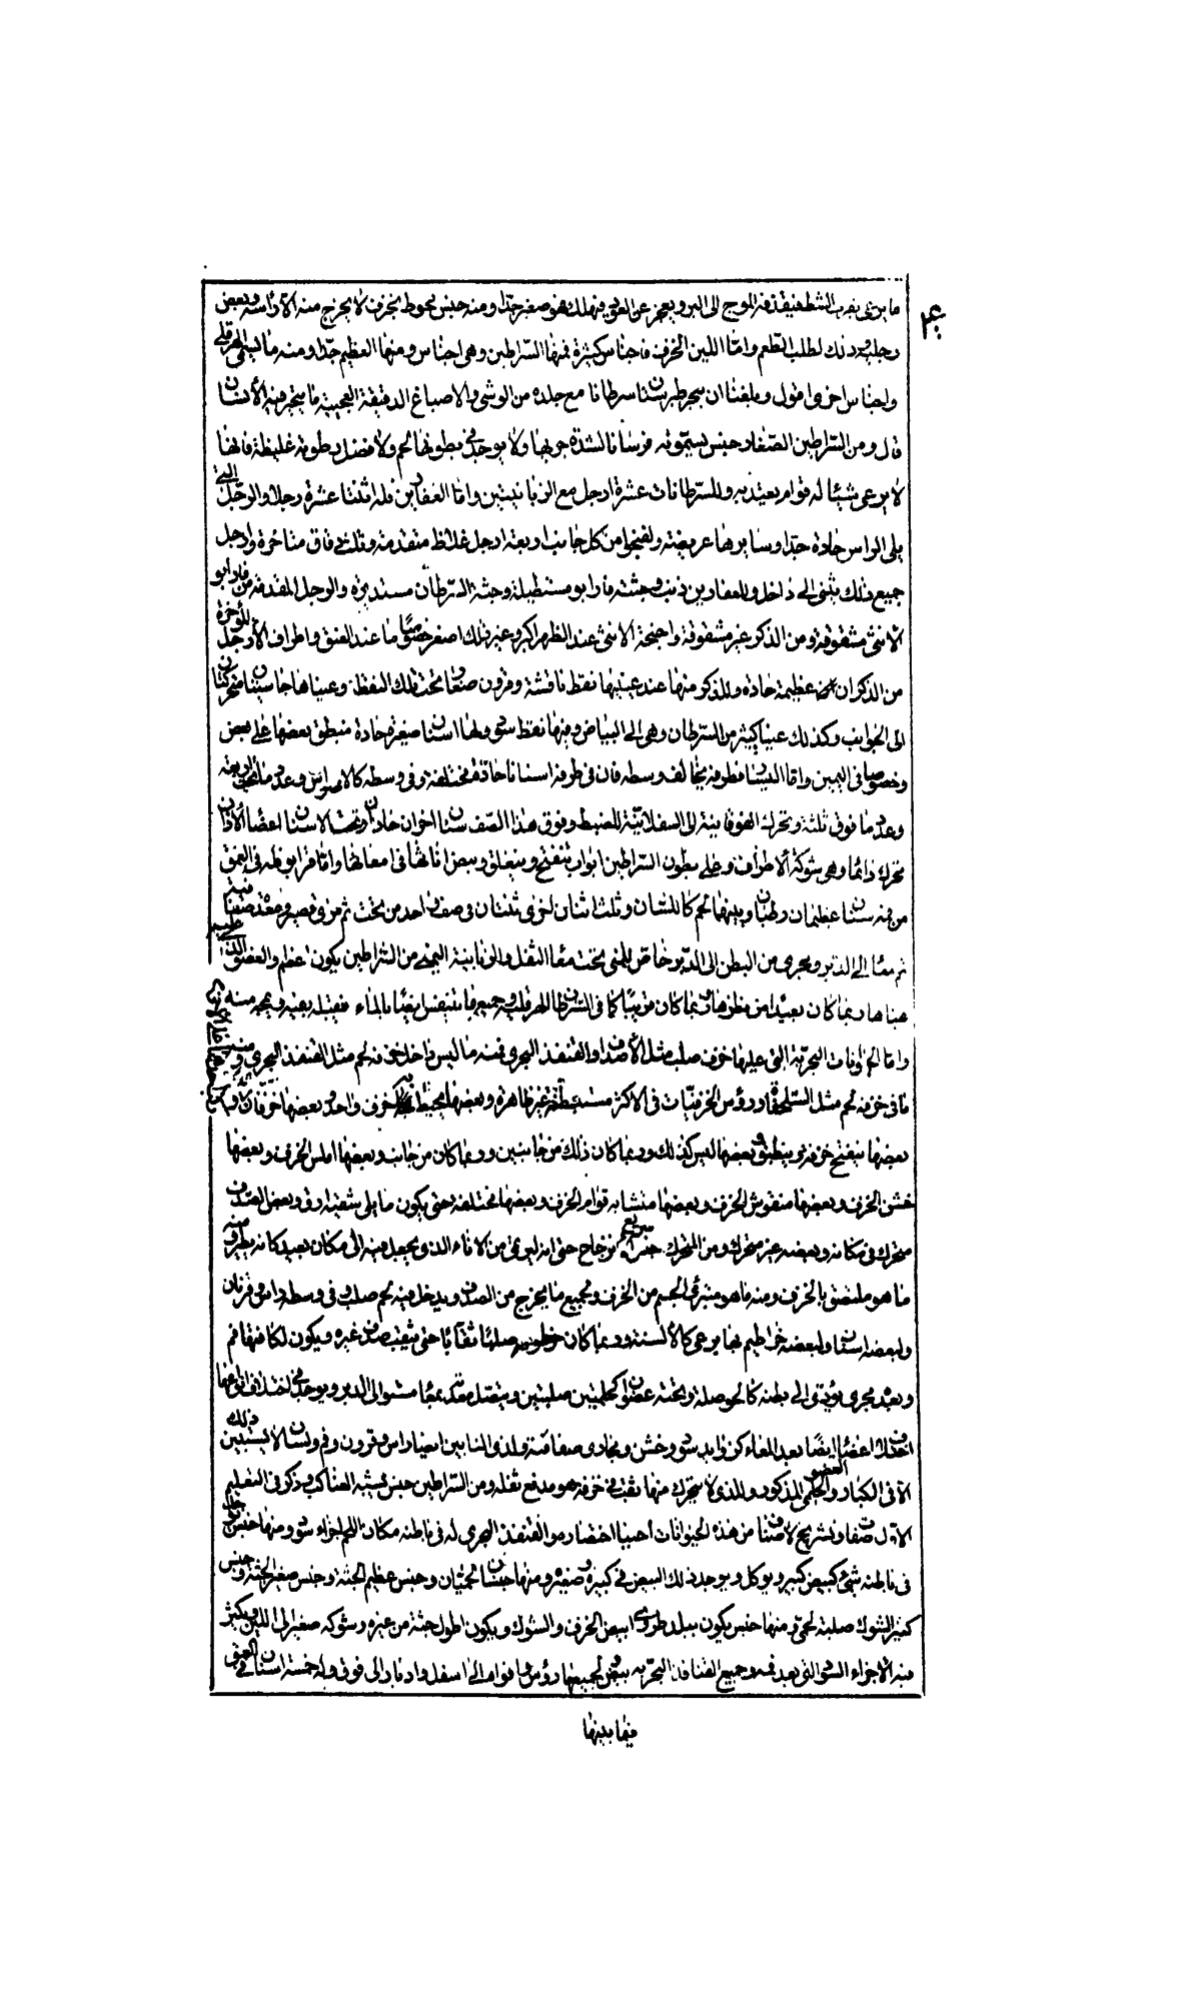 ما يرتمى بقرب الشط فيقذفه الموج الى البر ويعجز عن العود فيهلك هو صغير جدا ومنه جنس محوط بخزف لا يخرج منه الا راسه وبعض
رجليه وذلك لطلب الطعم واما اللين الخزف فاجناس كثيرة فمنها السراطين وهى اجناس ومنها العظيم جدا ومنه ما
واجناس اخرى اقول وبلغنا ان ببحر طبرستان سرطانا مع جلده من الوشى والاصباغ الدقيقة العجيبة ما يتحير فيه الانسان
قال ومن السراطين الصغار جنس يسمونه فرسانا لشدة جريها ولا يوجد فى بطونها لحم ولا فضل رطوبة غليظة فانها
لا يرعى شيئا له قوام يعتد به وللسرطانات عشرة ارجل مع الزبانيتين واما فله اثنتا عشرة رجلا والرجل التى
يلى الراس حادة جدا وسايرها عريضة من كل جانب اربعة ارجل غلاظ متقدمة وثلث دقاق متاخرة وارجل
جميع ذلك يثنى الى داخل ذنب وجثته مستطيلة وجثة السرطان مستديرة والرجل المقدمة من
الانثى مشقوقة ومن الذكر غير مشقوقة واجنحة الانثى عند الظهر اكبر وغير ذلك اصغر خصوصا ما عند العنق واطراف الارجل المؤخرة
من الذكران عظيمة حادة وللذكر منها عند عينيها نقط ناقشة وقرون صغار تحت تلك النقط وعيناها جاسيتان متحركتان
الى الجوانب وكذلك عينا كثير من السرطان وهى الى البياض وفيها نقط سود ولها اسنان صغيرة حادة منطبق بعضها على بعض
وخصوصا فى اليمين واما اليسار فطرفه يخالف وسطه فان فى طرفه اسنانا حادة مختلفة وفى وسطه كالاضراس وعدد ما تحت اربعة
وعدد ما فوق ثلثة وتحرك الفوقانية الى السفلانية للضبط وفوق هذا الصف سنان اخران حادان وتحت الاسنان اعضاء الاذان
تحرك دائما وهى شوكة الاطراف وعلى بطون السراطين ابواب تنفتح وتنغلق وبيض اناثها فى امعائها واما قرابو فله فى العمق
من فمه سنان عظيمان رطبان وبينهما لحم كاللسان وثلث اسنان اخرى ثنتان فى صف واحد من تحت ثم مرى قصير ومعدة صغيرة
ثم معاء الى الدبر ومجرى من البطن الى الدبر خاص للمنى تحت معاء الثفل والزبانية اليمنى من السراطين يكون اعظم والعضو الذى
عيناها ربما كان بعيدا من طرفها وربما كان قريبا كما فى السرطان الهرقلى وجميع ما يتنفس بالماء فيقبله بفيه ويمجه منه
واما الحلزونات البحرية التى عليها خزف صلب مثل الاصداف والقنفذ البحرى فمنه ما ليس داخل خزفه لحم مثل القنفذ البحرى ومنه
ما فى خزفه لحم مثل السلحفاة ورؤس الخزفيات فى الاكثر مستبطنة غير ظاهرة وبعضها يحيط به خزف واحد وبعضها خزفان
بعضها ينفتح خزفه وينطبق وبعضها ليس كذلك وربما كان ذلك من جانبين وربما كان من جانب وبعضها املس الخزف وبعضها
خشن الخزف وبعضها منقوش الخزف وبعضها متشابه قوام الخزف وبعضها مختلفة حتى يكون ما يلى شفته ارق وبعض الصدف
متحرك فى مكانه وبعضه غير متحرك ومن المتحرك جنس سريع حتى انه ليرتمى من الاناء الذى يجعل فيه الى مكان بعيد كانه يطير ومنه
ما هو ملتصق بالخزف ومنه ما هو متبرئ الجسم من الخزف وجميع ما يخرج من الصدف ويدخل فيه لحم صلب وفى وسطه راس وقرنان
ولبعضه اسنان ولبعضه خراطيم بها يرعى كالالسنة وربما كان خرطومه صلبا ثقابا حتى يثقب صدف غيره ويكون لكلها فم
وبعده مجرى يؤدى الى بطنه كالحوصلة وتحته عضوان كحلمتين صلبتين ويتصل بمعاء مستو الى الدبر ويوجد فى اختلاف انواعها
اختلاف اعضاء ايضا بعد المعاء كزوايد سود وخشن ومجارى صفاقية ولذى النابين ايضا راس وقرون وفم ولسان لا يستبين ذلك
الا فى الكبار والعضو الحلمى المذكور والذى لا يتحرك منها يثقب فى خزفه هو مدفع ثفله ومن السراطين جنس يشبه العناكب وذكر فى التعليم
الاول صفات وتشريح لاصناف من هذه الحيوانات احببنا اختصارها والقنفذ البحرى له فى باطنه مكان اللحم اجزاء سود ومنها جنس
فى باطنه شىء كبيض كبير ويؤكل ويوجد ذلك البيض فى كبيره وصغيره ومنها جنسان وجنس عظيم الجثة وجنس صغير الجثة وجنس
كثير الشوك صلبة لحمى ومنها جنس يكون ببلد ابيض الخزف والشوك ويكون اطول جثة من غيره وشوكه صغير الى اللين ويكثر
منه الاجزاء السود التى بعد فمه وجميع القنافذ البحرية يبيض لجميعها رؤس وافواه الى اسفل وادبار الى فوق وله خمسة اسنان فى العمق
فيما بينها